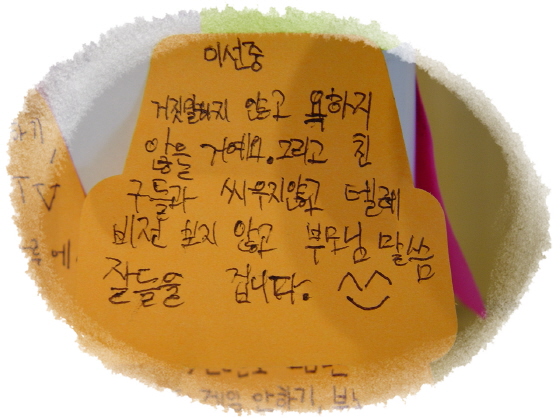 이선중
거짓말하지 않고 욕하지
않을 거예요. 그리고 친
구들과 싸우지않고 텔레
비전 보지 않고 부모님 말씀
잘들을 겁니다. ^^
TV
에
게임 안하기,